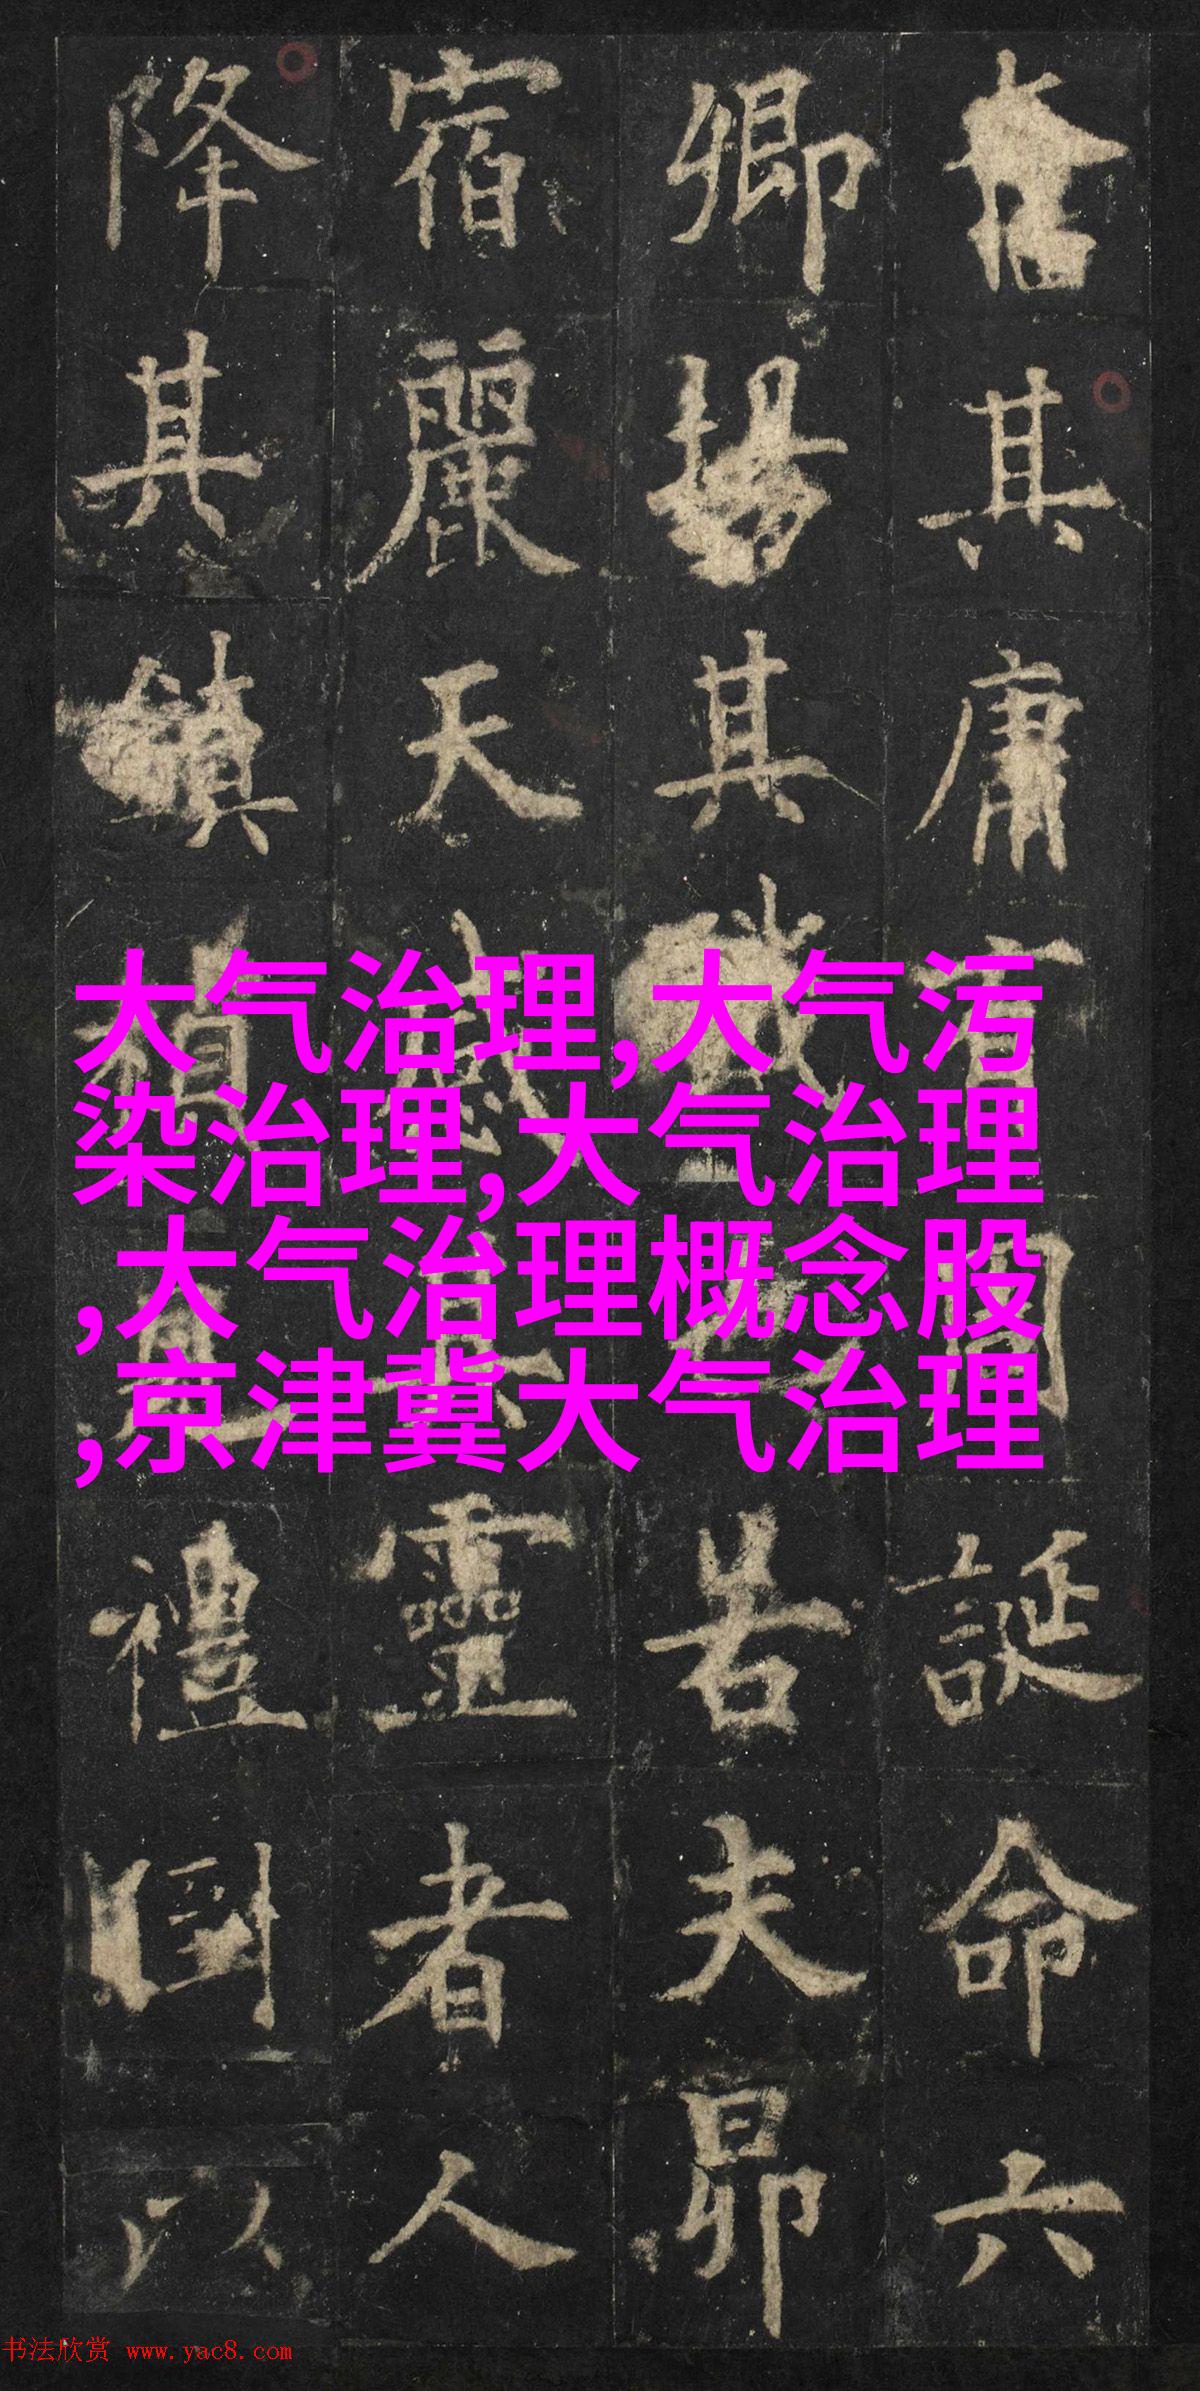 其庸誕命六
卿揚其職若夫昴
宿麗天感靈者人
降其鎮禎禮國以
大气治理,大气污
染治理,大气治理
,大气治理概念股
,京津冀大气治理
书法欣赏 www.yac8.com